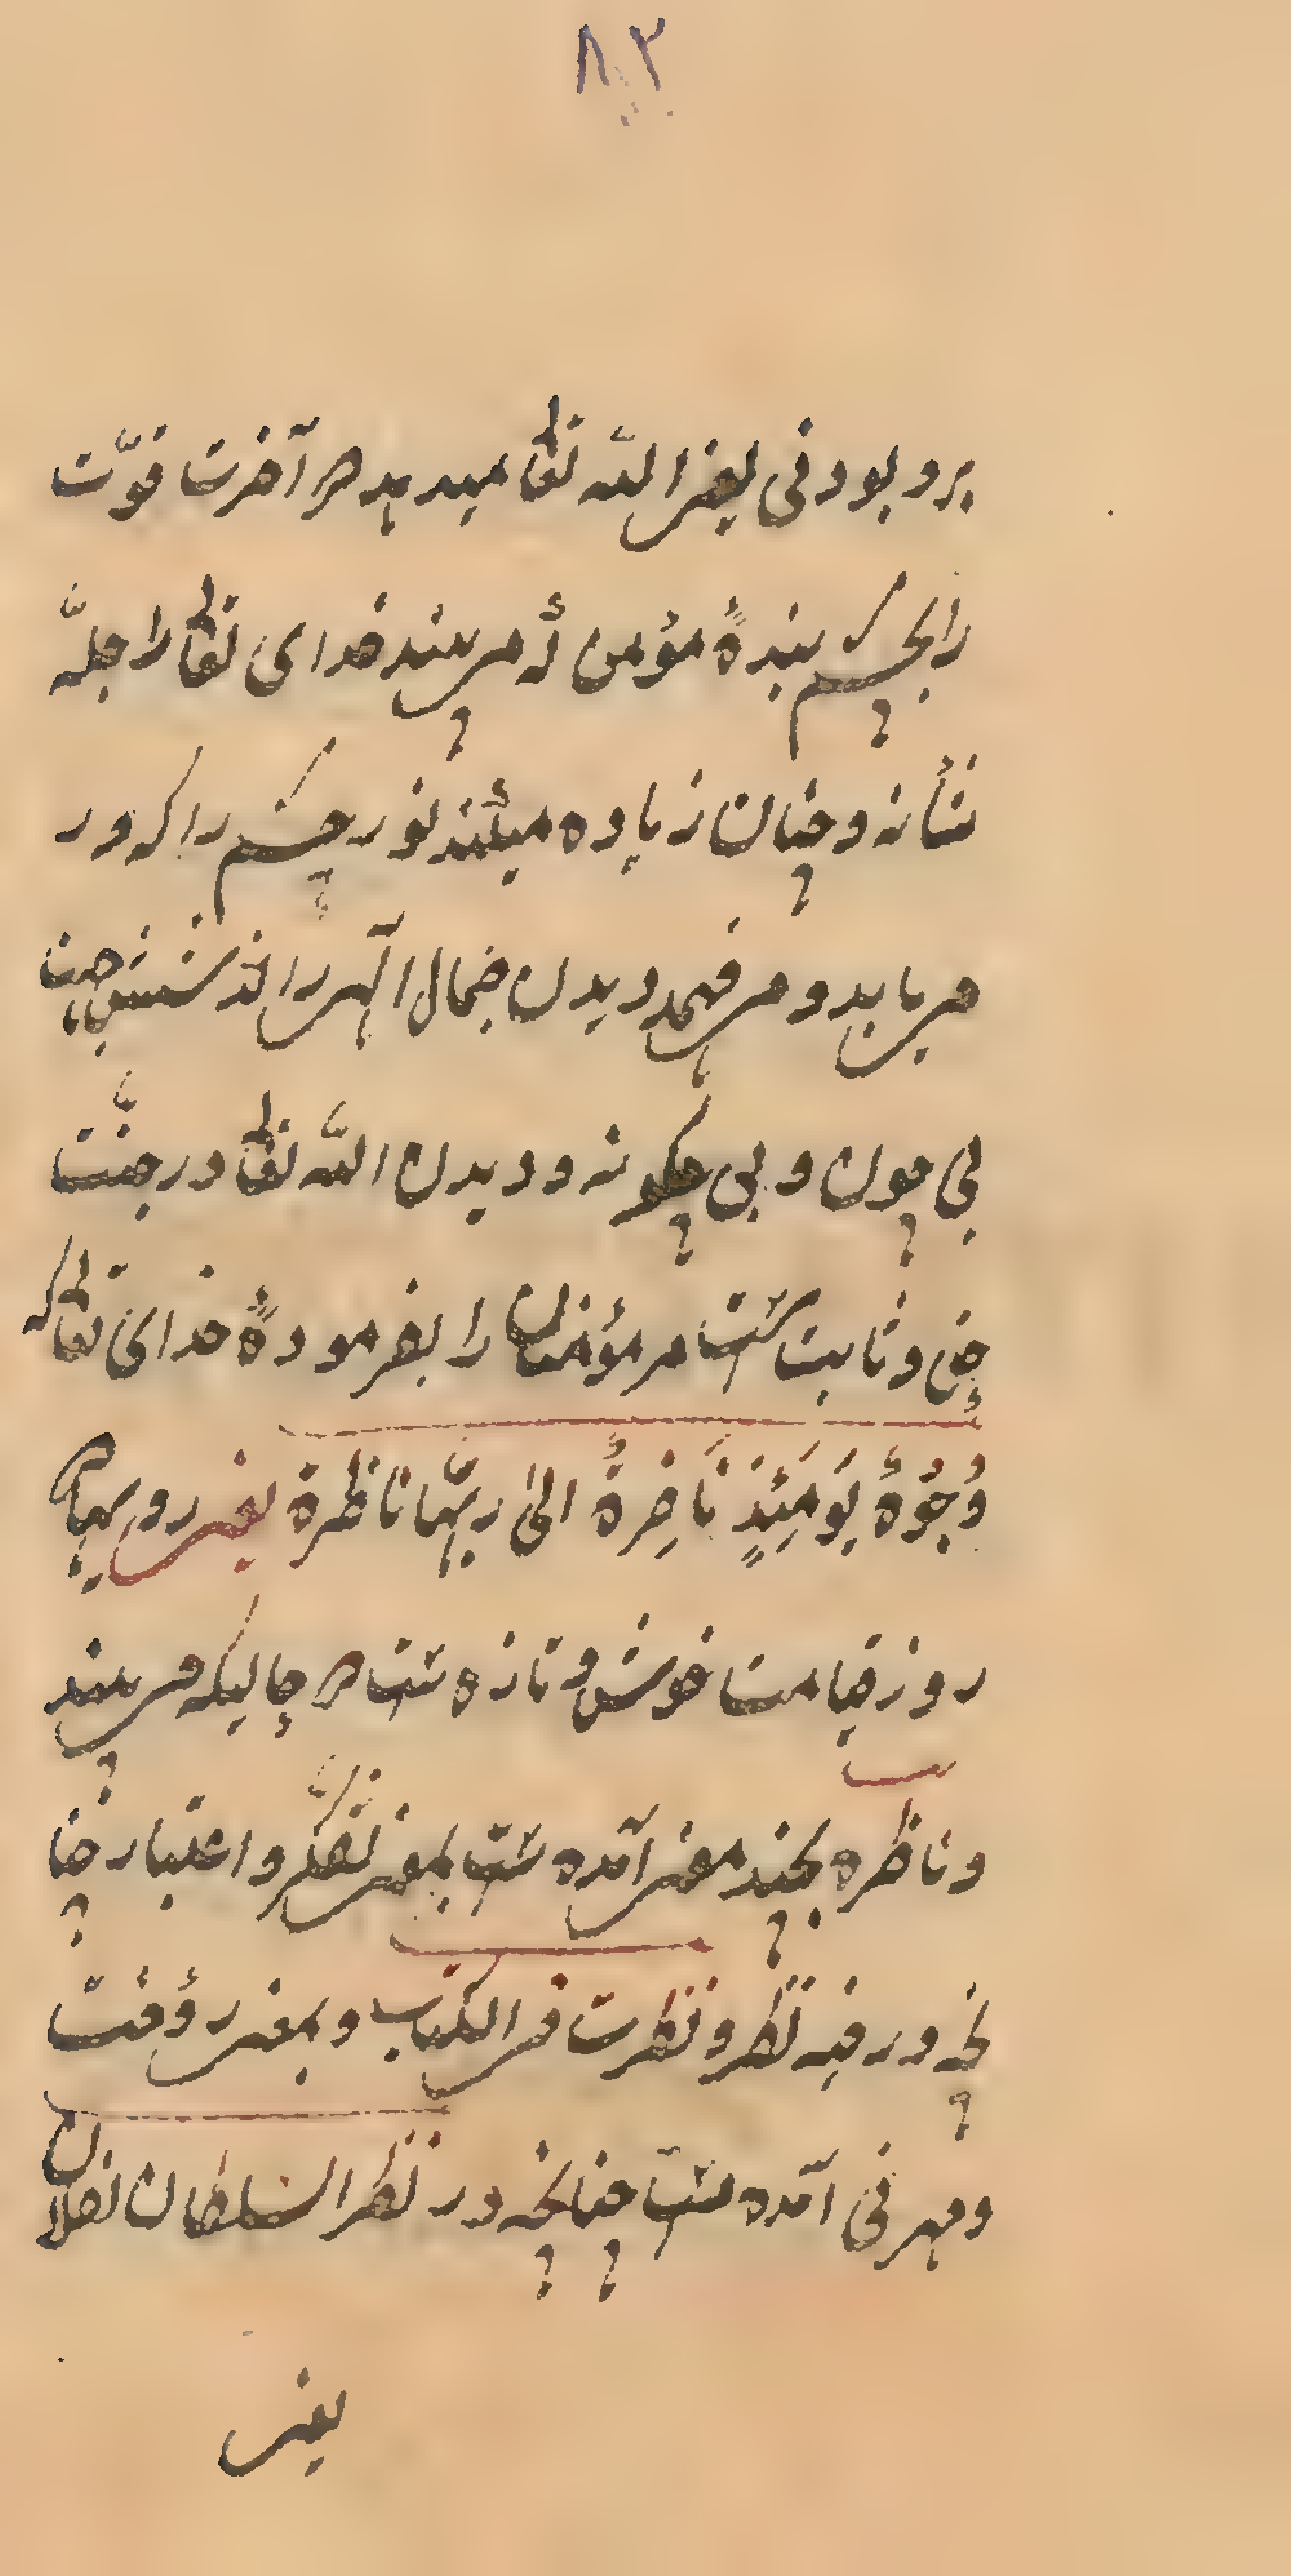 ٨٣
برو بودنی یعنی الله تعالی میدهد در آخرت قوّت
را بچشم بندۀ مؤمن که می بیند خدای تعالی را جلّ
شأنه و چنان زیاده میکند نور چشم را که در
می یابد و می فهمد دیدن جمال الهی را از شش جهت
بی چون و بی چگونه و دیدن الله تعالی در جنّت
حق و ثابت است مر مؤمنان را بفرمودۀ خدای تعالی که
وُجُوْهٌ يَوْمَئِذٍ نَاضِرَةٌ الىٰ ربّها ناظرة یعنی رویها
روز قیامت خوش و تازه است در حالیکه می بیند
و ناظره بچند معنی آمده است بمعنی تفکّر و اعتبار چنا
نچه در فیه نظر و نظرت فی الکتاب و بمعنی رؤفت
و مهرفی آمده است چنانچه در نظر السلطان لفلان
یعنی